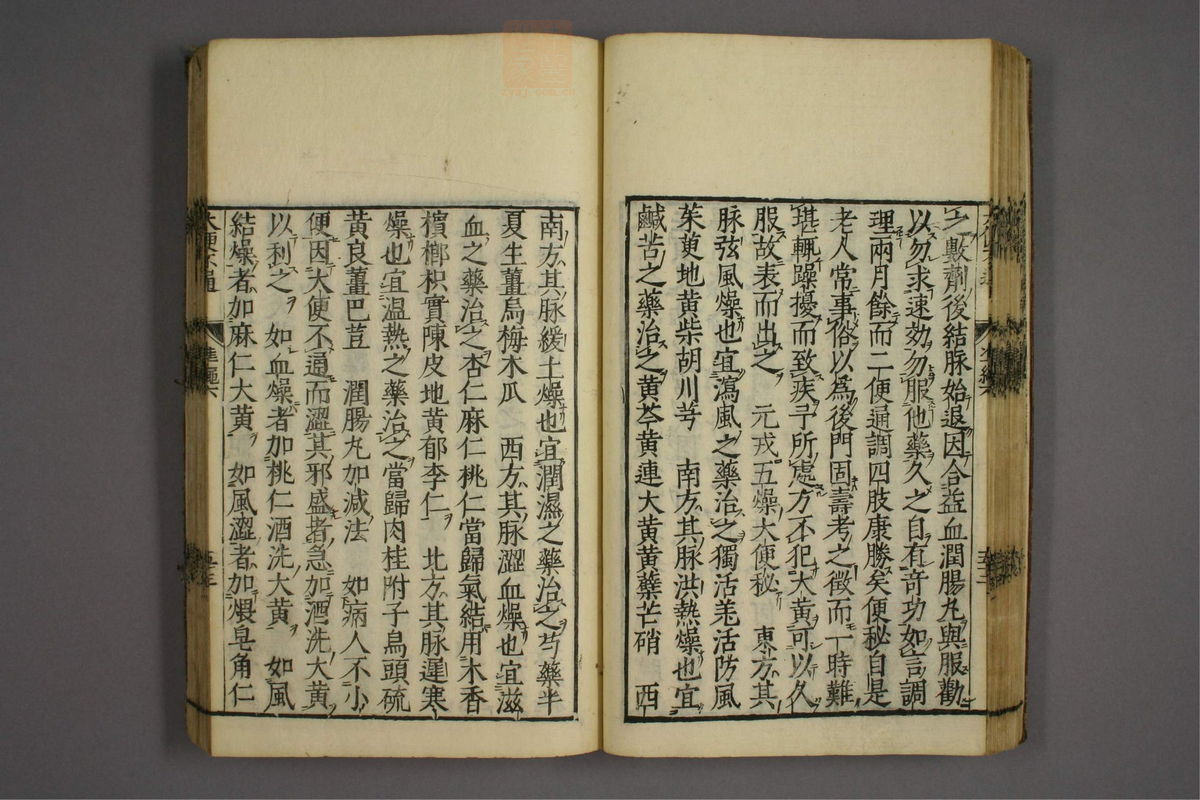 之數劑後結脉始退因合益血潤腸丸與服勸
以勿求速効勿服他藥久之自有竒功如言調
理兩月餘而二便通調四肢康勝矣便秘自是
老人常事俗以爲後門固壽考之徵而一時難
堪輒躁擾而致疾予所處方不犯大黃可以久
服故表而出之　元戎五燥大便秘　東方其
脉弦風燥也宜瀉風之藥治之獨活羌活防風
茱萸地黃柴胡川芎　南方其脉洪熱燥也宜
鹹苦之藥治之黃芩黃連大黃黃蘗芒硝　西
南方其脉緩土燥也宜潤濕之藥治之芍藥半
夏生薑烏梅木瓜　西方其脉澀血燥也宜滋
血之藥治之杏仁麻仁桃仁當歸氣結用木香
檳榔枳實陳皮地黃郁李仁　北方其脉遲寒
燥也宜温熱之藥治之當歸肉桂附子烏頭硫
黃良薑巴荳　潤腸丸加減法　如病人不小
便因大便不通而澀其邪盛者急加酒洗大黃
以利之　如血燥者加桃仁酒洗大黃　如風
結燥者加麻仁大黃　如風澀者加煨皂角仁
大便不通
準繩六
五十三